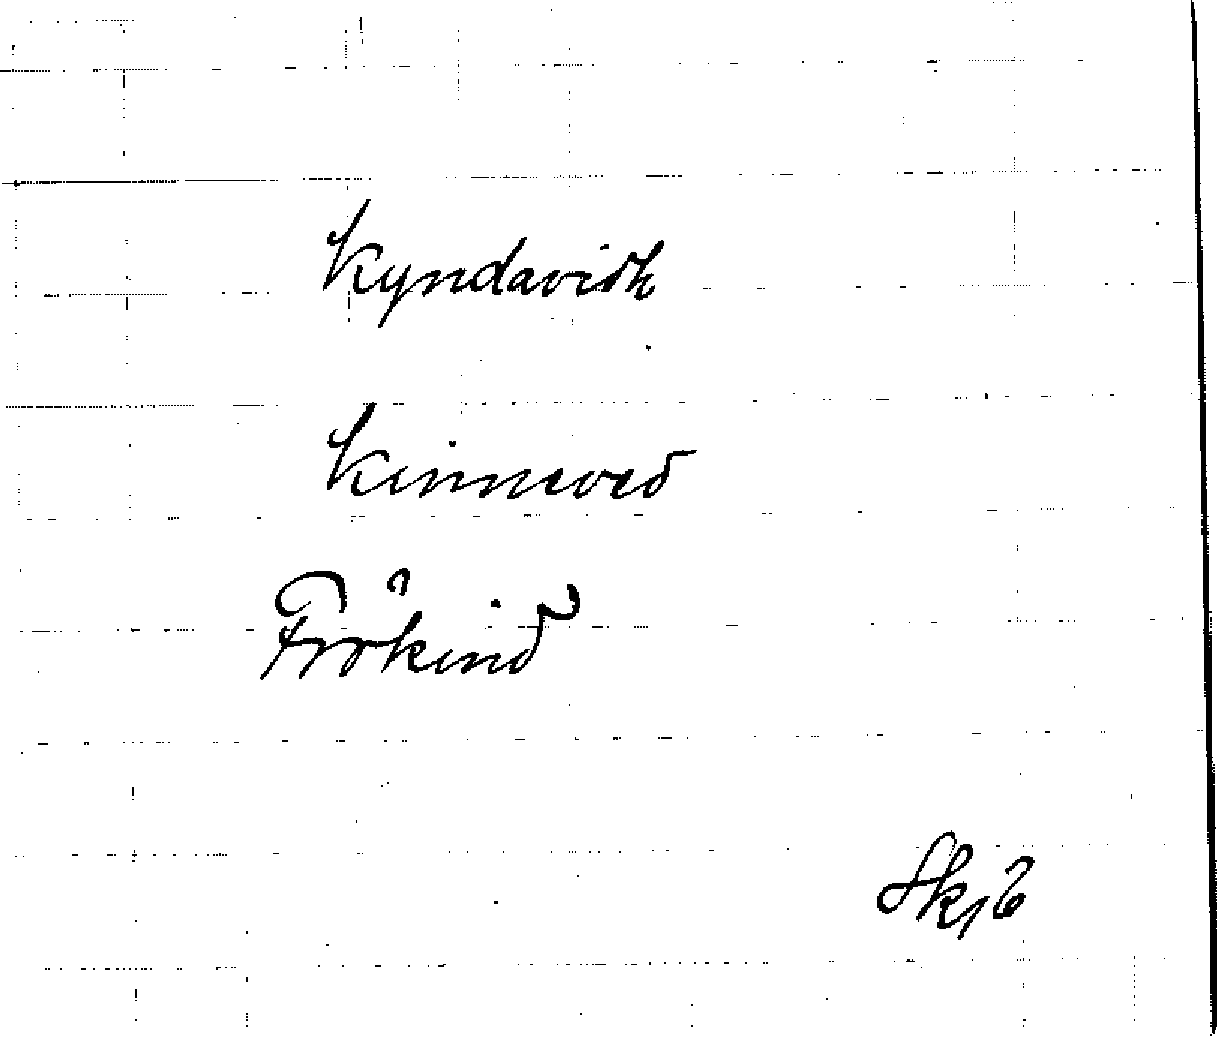 Kyndavidh
Kinneved
Frökind
Sk, 6